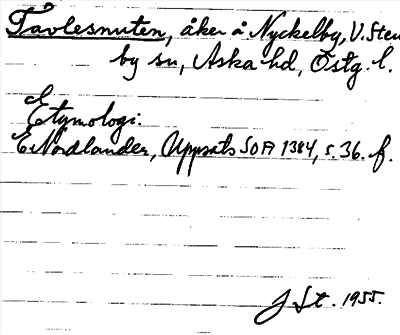 Tåvlesnuten, åker å Nyckelby, V. Sten
by sn, Aska hd, Östg. l.
Etymologi:
E Nordlander, Uppsats SOA 1384, s. 36. f.
J St. 1955.